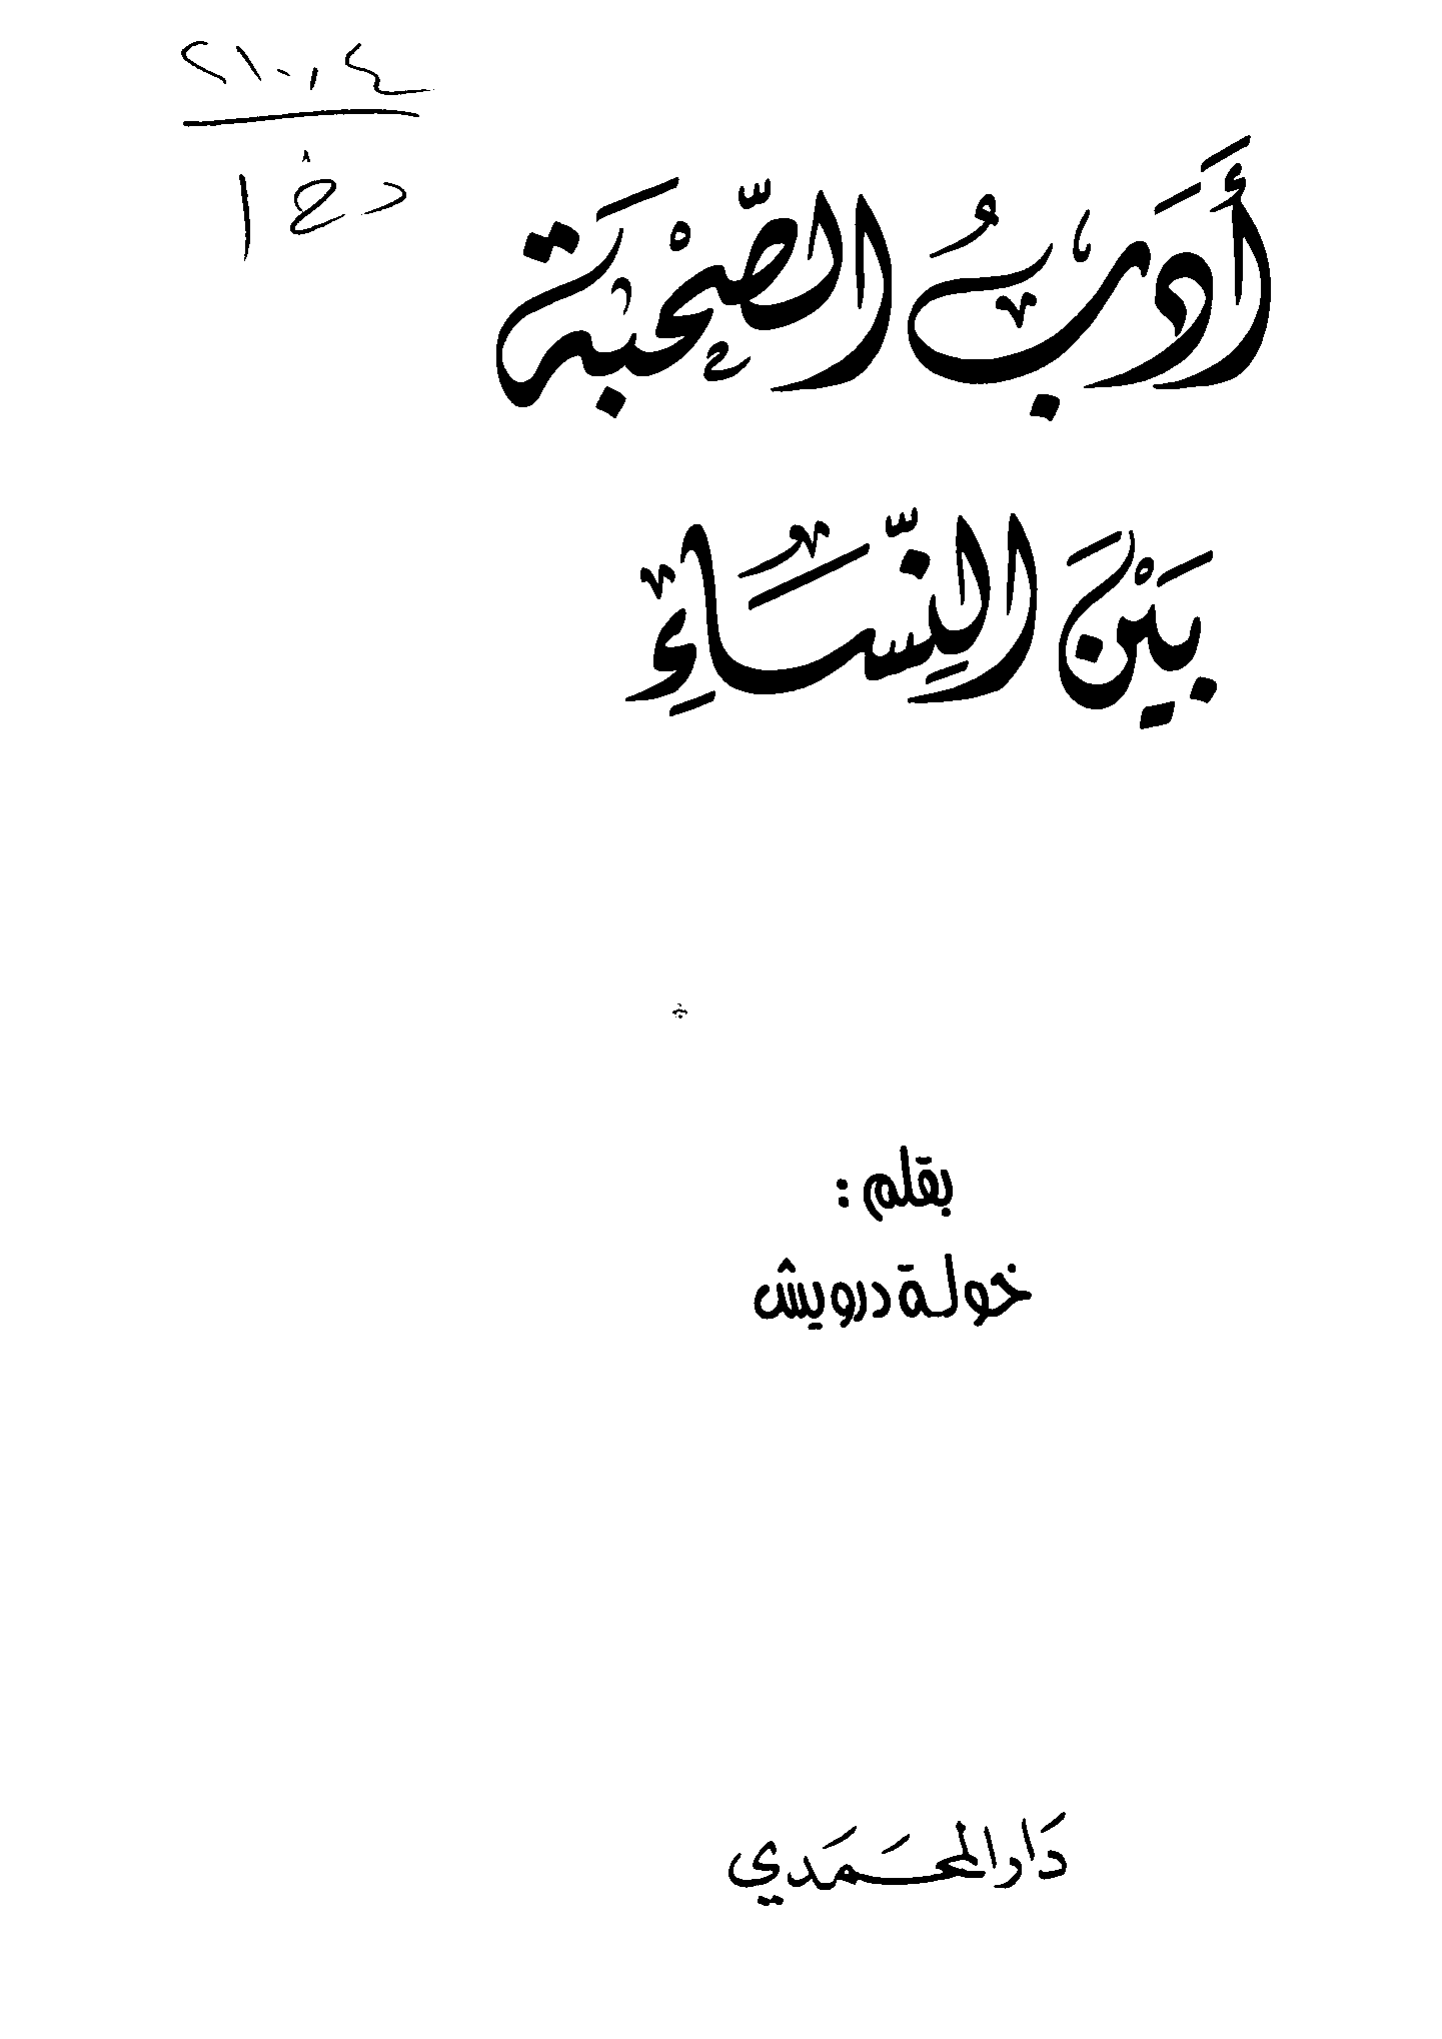 أَدَبُ الصّحْبَة
بَيْنَ النِّسَاءِ
بقلم :
خولة درويش
دَار المحَمَدي